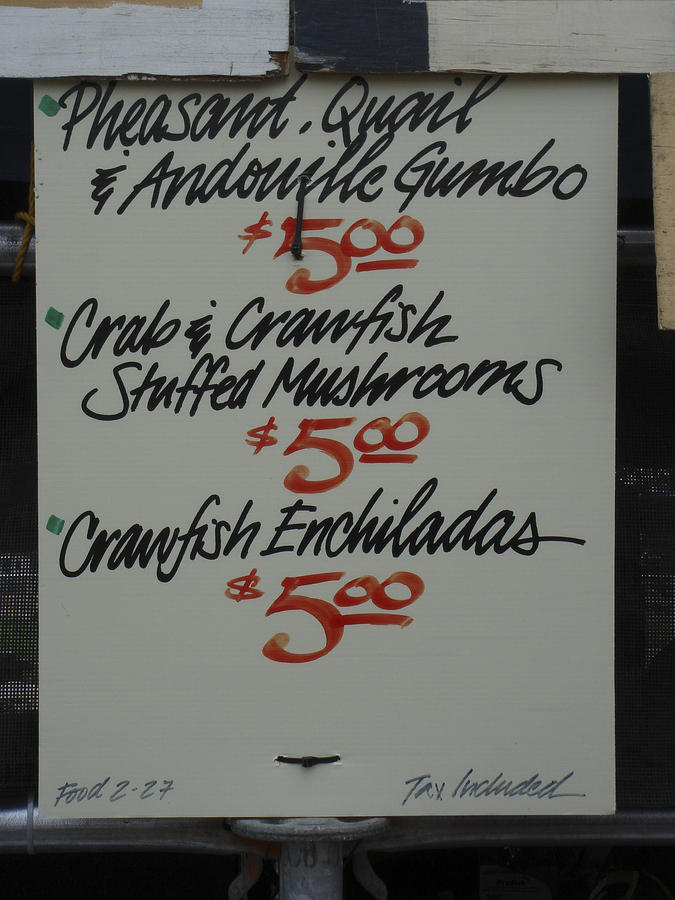 Pheasant, Quail
& Andouille Gumbo
$5.00
Crab & Crawfish
Stuffed Mushrooms
$5.00
Crawfish Enchiladas
$5.00
Food 2-27
Tax Included